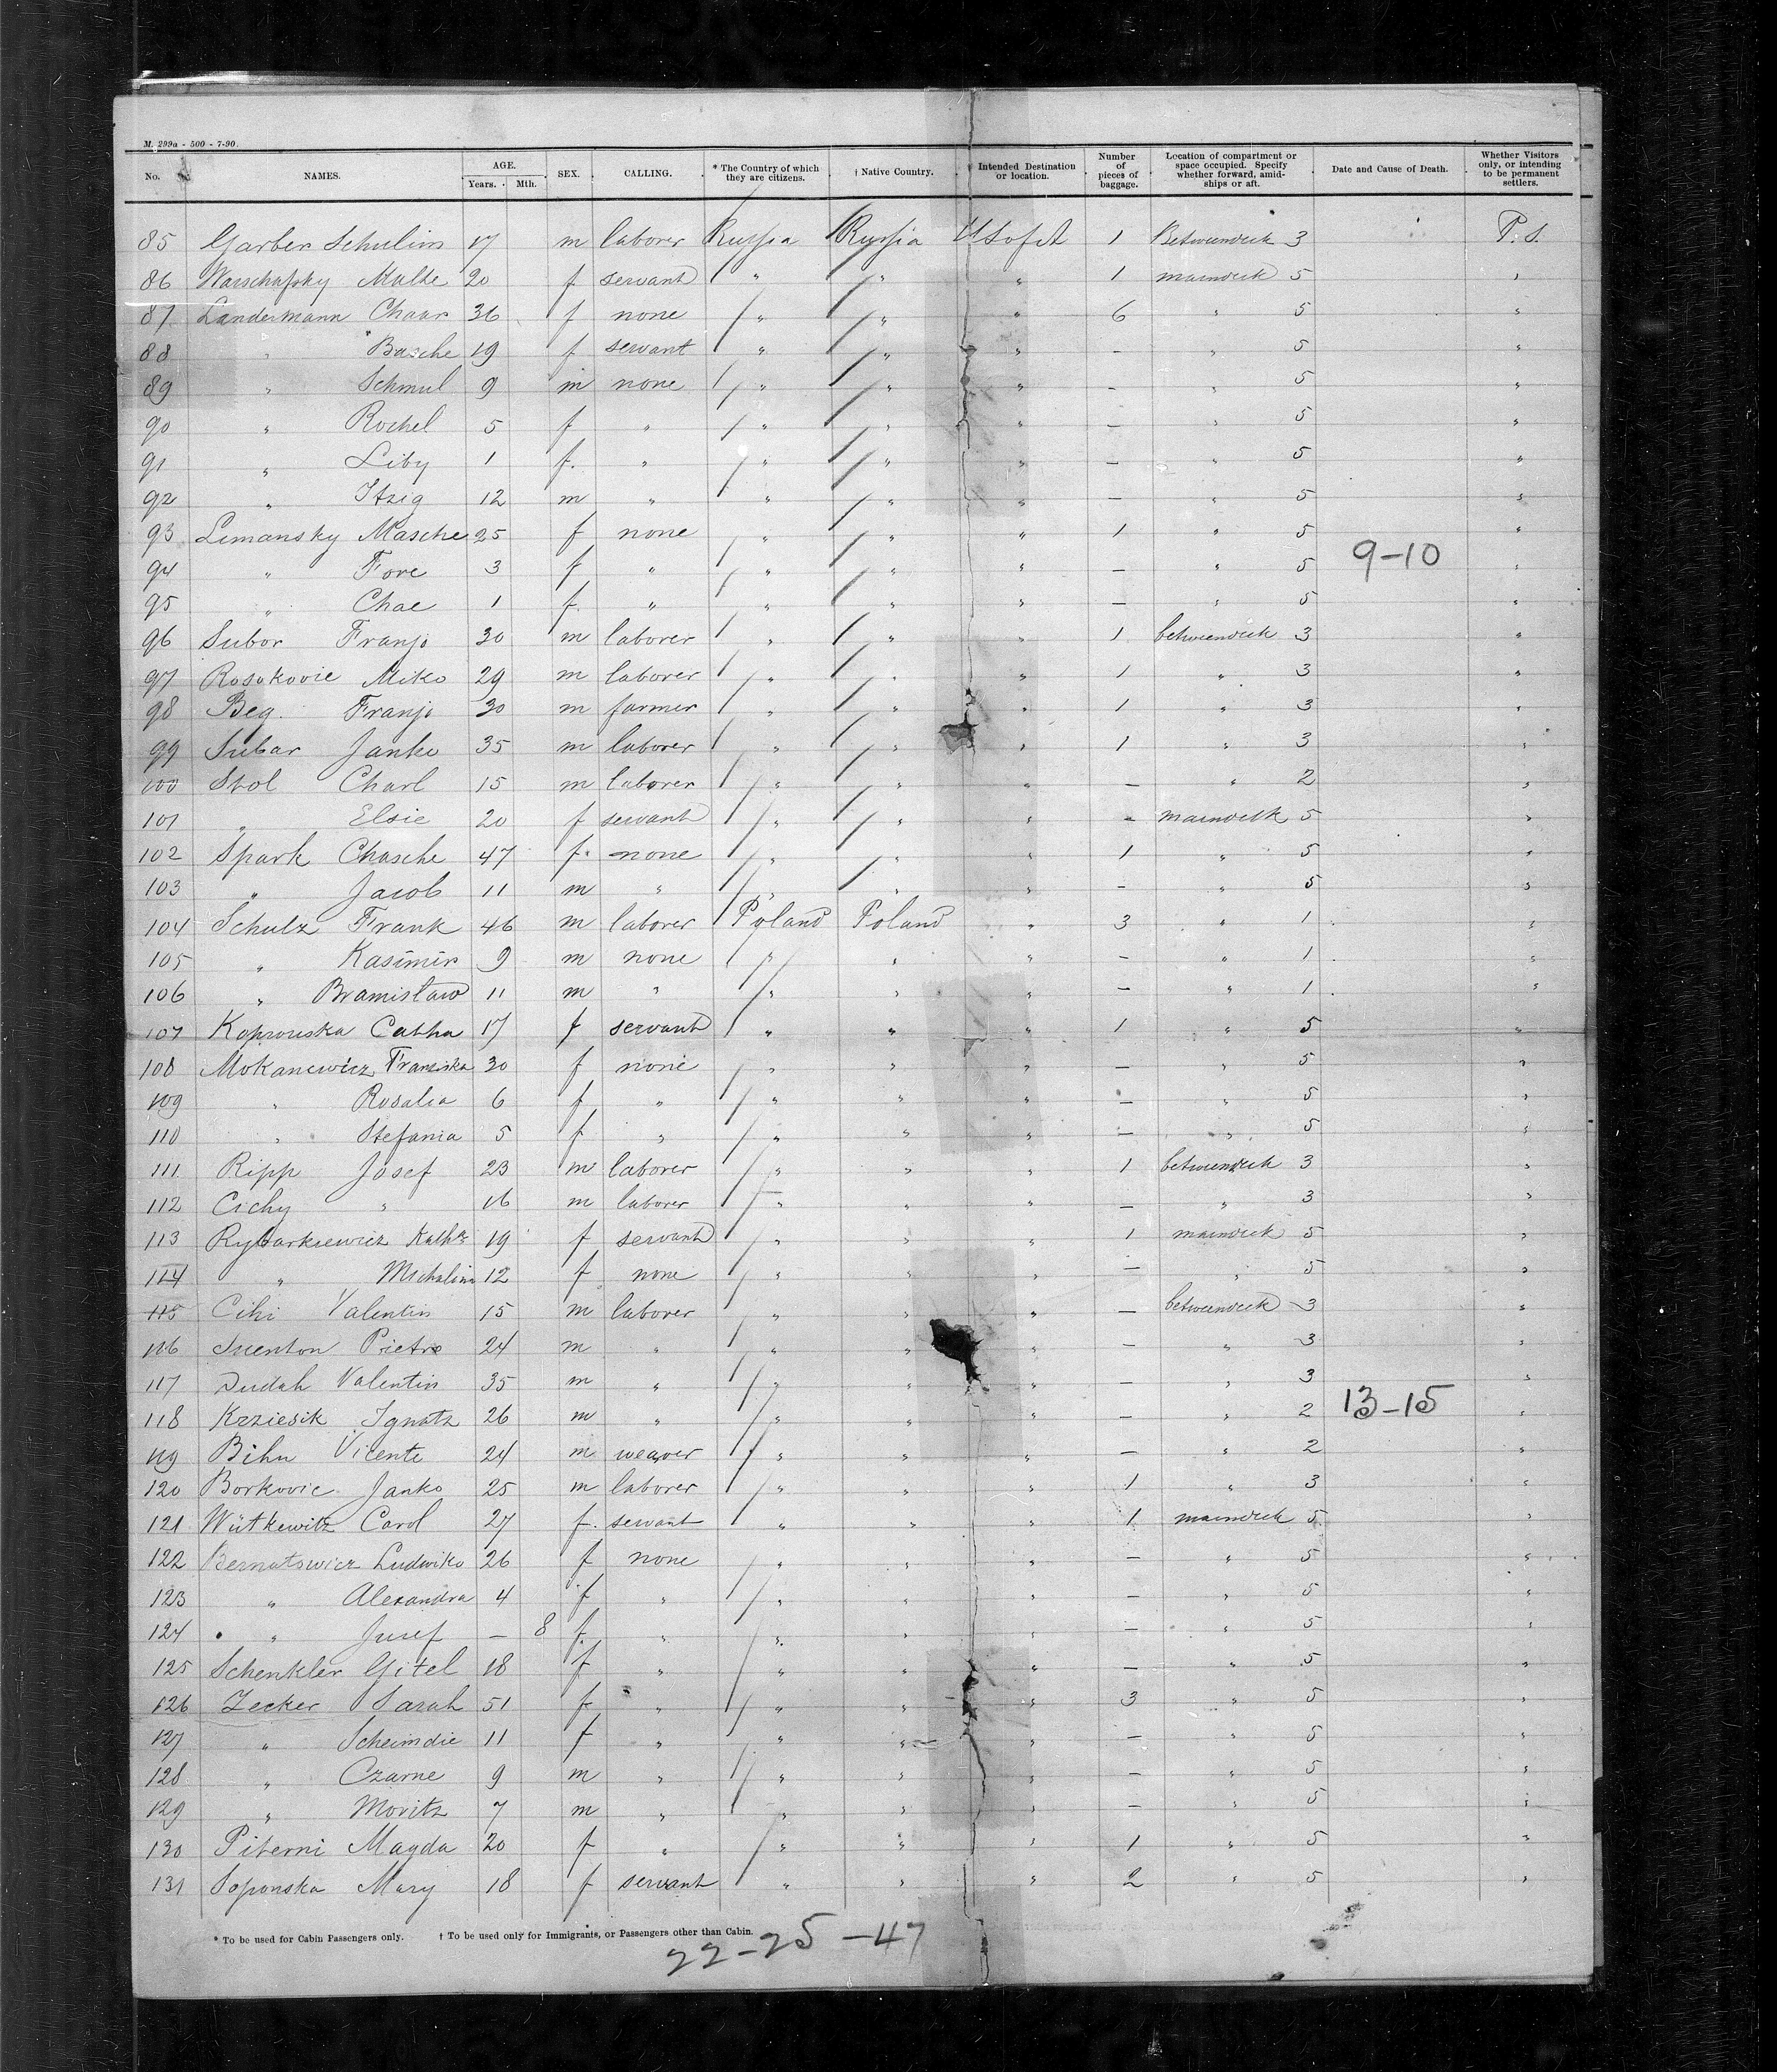 M. 299a - 500 - 7-90.
No. NAMES. AGE. Years. Mth. SEX. CALLING. * The Country of which they are citizens. † Native Country. Intended Destination or location. Number of pieces of baggage. Location of compartment or space occupied. Specify whether forward, amidships or aft. Date and Cause of Death. Whether Visitors only, or intending to be permanent settlers.
85 Garber Schulim 17 m laborer Russia Russia U S of A 1 Betweendeck 3 P. S.
86 Warschafsky Malke 20 f servant " " " 1 maindeck 5 "
87 Landermann Chaar 36 f none " " " 6 " 5 "
88 " Basche 19 f servant " " " — " 5 "
89 " Schmul 9 m none " " " — " 5 "
90 " Rochel 5 f " " " " — " 5 "
91 " Liby 1 f. " " " " — " 5 "
92 " Itzig 12 m " " " " — " 5 "
93 Limansky Masche 25 f none " " " 1 " 5 "
94 " Fore 3 f " " " " — " 5 9-10 "
95 " Chae 1 f. " " " " — " 5 "
96 Subor Franjo 30 m laborer " " " 1 betweendeck 3 "
97 Rosokovic Miko 29 m laborer " " " 1 " 3 "
98 Beg. Franjo 30 m farmer " " " 1 " 3 "
99 Subar Janko 35 m laborer " " " 1 " 3 "
100 Stol Charl 15 m laborer " " " — " 2 "
101 " Elsie 20 f servant " " " - maindeck 5 "
102 Spark Chasche 47 f. none " " " 1 " 5 "
103 " Jacob 11 m " " " " — " 5 "
104 Schulz Frank 46 m laborer Poland Poland " 3 " 1 "
105 " Kasimir 9 m none " " " — " 1 "
106 " Bramislaw 11 m " " " " — " 1 "
107 Koprouska Catha 17 f servant " " " 1 " 5 "
108 Mokanewicz Franziska 30 f none " " " — " 5 "
109 " Rosalia 6 f " " " " — " 5 "
110 " Stefania 5 f " " " " — " 5 "
111 Ripp Josef 23 m laborer " " " 1 betweendeck 3 "
112 Cichy " 16 m laborer " " " — " 3 "
113 Rybarkiewicz Kath 19 f servant " " " 1 maindeck 5 "
114 " Michalina 12 f none " " " — " 5 "
115 Cihi Valentin 15 m laborer " " " — betweendeck 3 "
116 Suenton Pietro 24 m " " " " — " 3 "
117 Dudah Valentin 35 m " " " " — " 3 "
118 Krziesik Ignatz 26 m " " " " — " 2 13-15 "
119 Bihn Vicente 24 m weaver " " " — " 2 "
120 Borkovic Janko 25 m laborer " " " 1 " 3 "
121 Wütkewitz Carol 27 f. servant " " " 1 maindeck 5 "
122 Bernatowicz Ludwika 26 f none " " " — " 5 "
123 " Alexandra 4 f " " " " — " 5 "
124 " Jusef — 8 f. " " " " — " 5 "
125 Schenkler Gitel 18 f " " " " — " 5 "
126 Zecker Sarah 51 f " " " " 3 " 5 "
127 " Scheimdie 11 f " " " " — " 5 "
128 " Czarne 9 m " " " " — " 5 "
129 " Moritz 7 m " " " " — " 5 "
130 Piterni Magda 20 f " " " " 1 " 5 "
131 Soponska Mary 18 f servant " " " 2 " 5 "
* To be used for Cabin Passengers only. † To be used only for Immigrants, or Passengers other than Cabin.
22-25-47